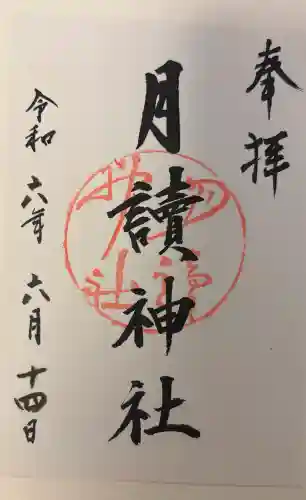 奉拝
月讀神社
令和六年六月十四日